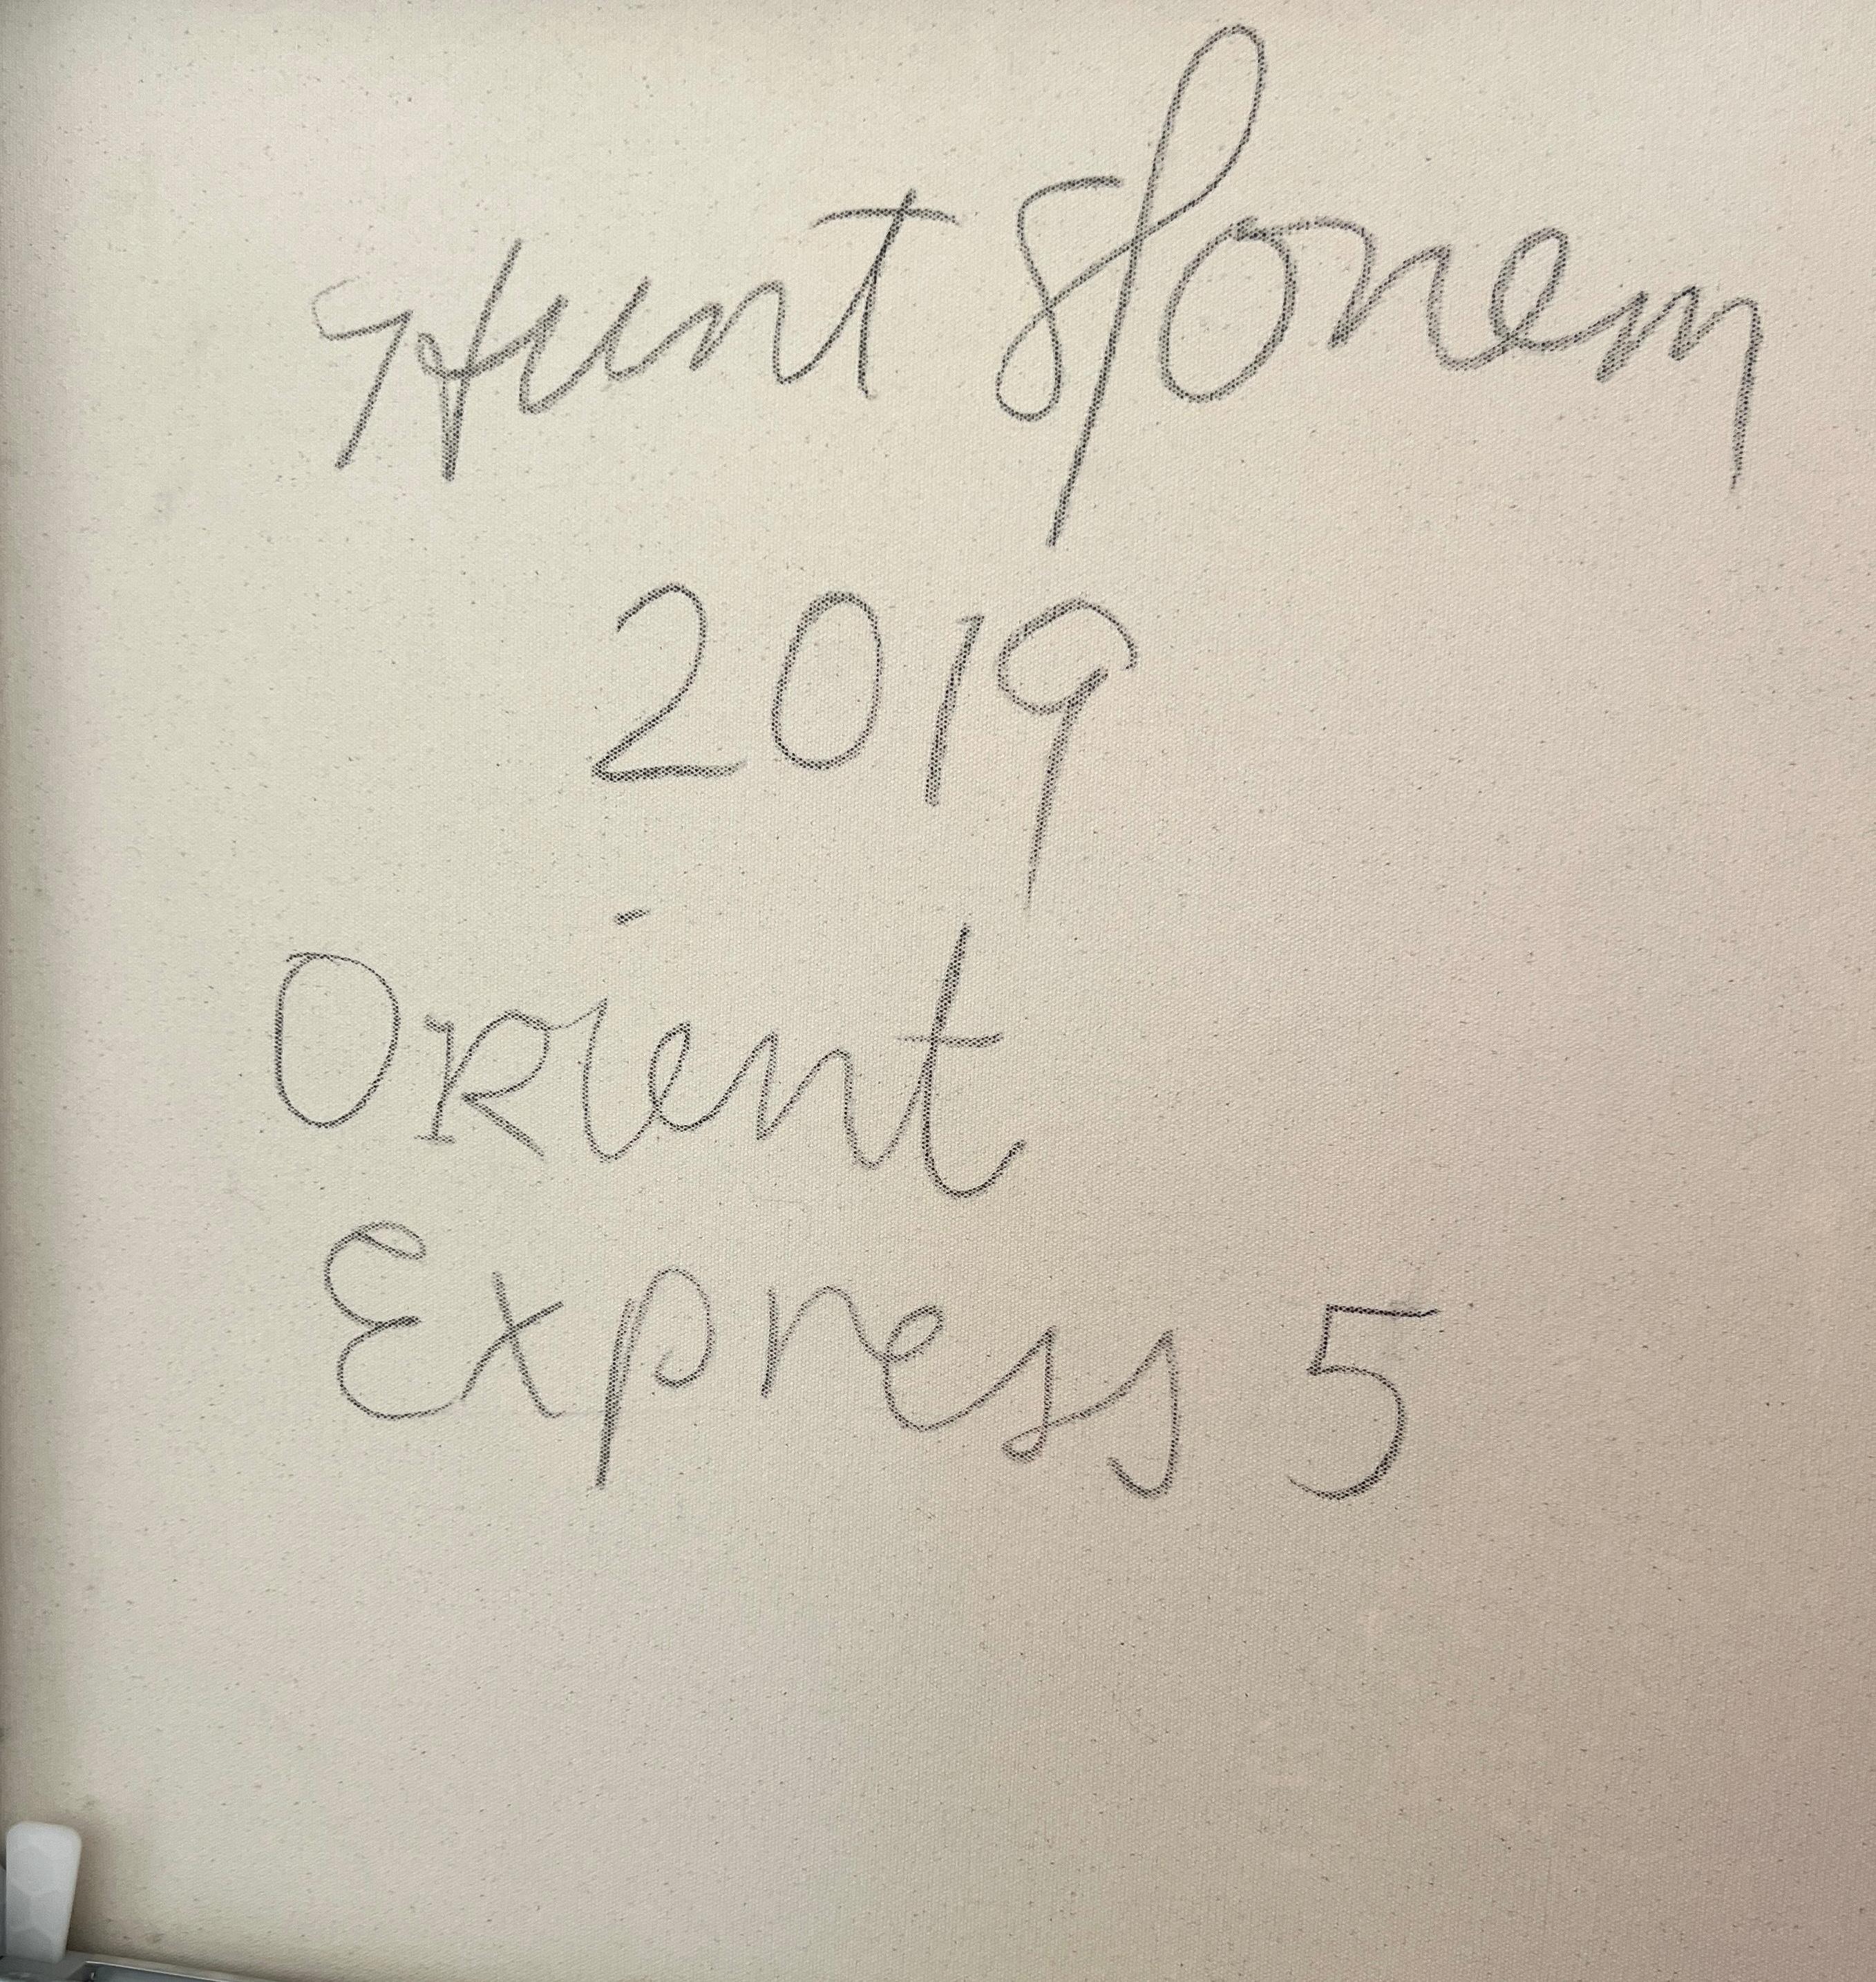 Hunt Slonem
2019
Orient
Express 5